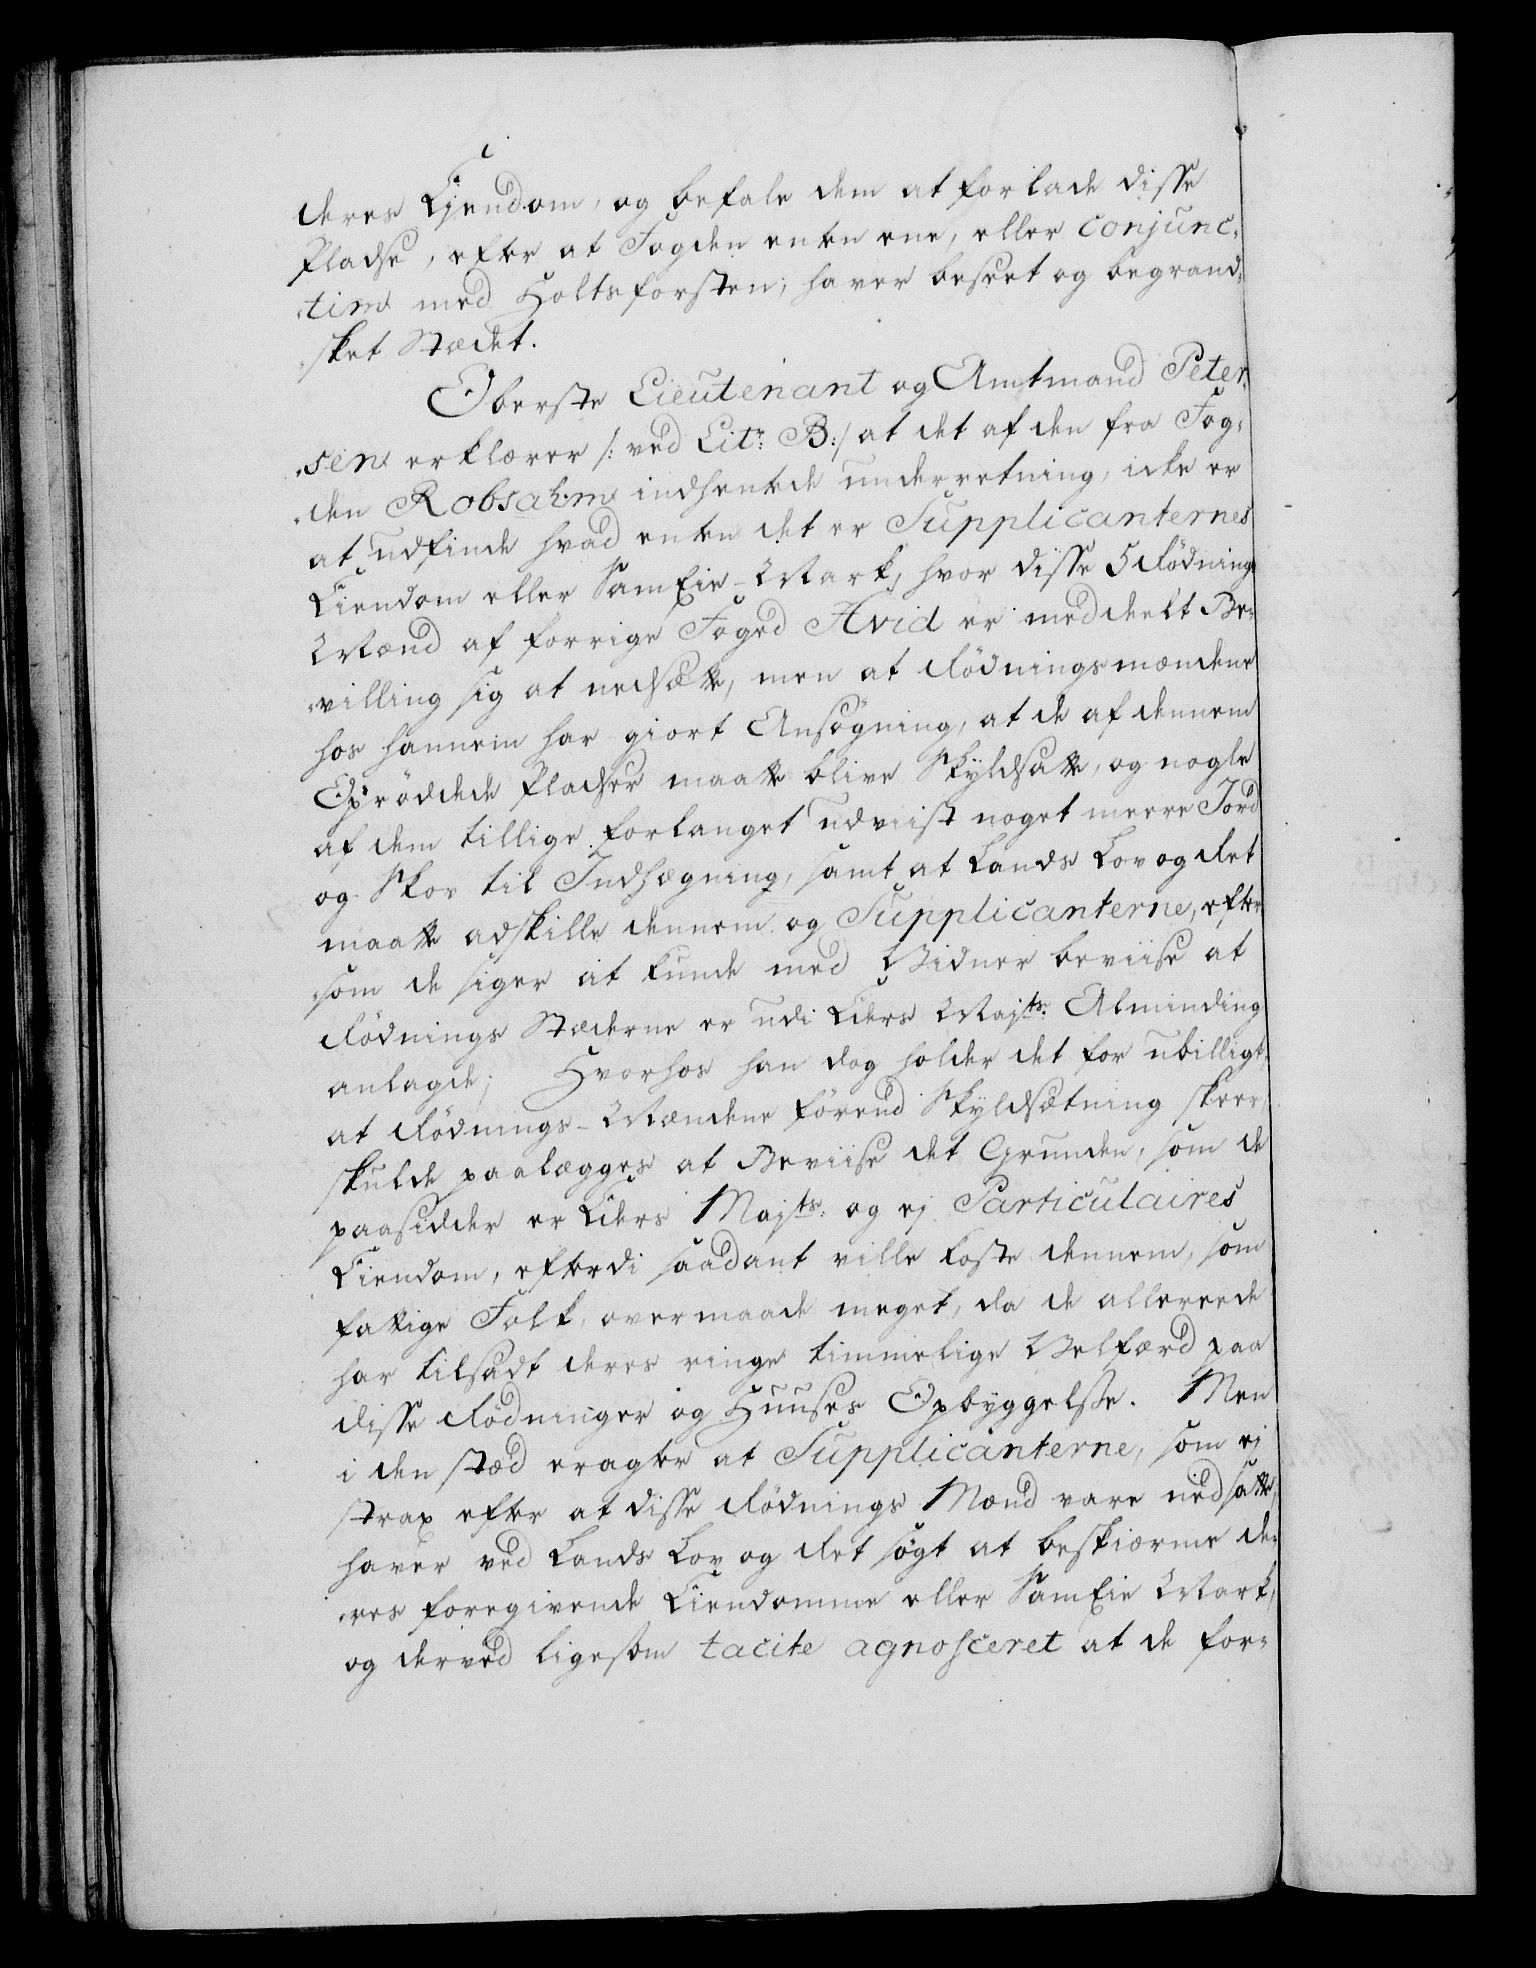 deres Ejendom, og befale dem at forlade disse
Pladse, efter at Fogden enten ene, eller conjunc-
tim med Holtsforsten, haver beseet og begrand-
sket Stædet.
Oberste Lieutenant og Amtmand Peter-
sen erklærer /: ved Litr: B:/ at det af den fra Fog-
den Robsahm indhentede underretning, icke er
at udfinde hvad enten det er Supplicanternes
Eiendom eller SamEie-Mark, hvor disse 5 Rødnings
Mænd af forrige Foged Hvid er meddeelt Be-
villing sig at nedsætte, men at Rødningsmændene
hos hannem har giort Ansøgning, at de af dennem
Oprøddede Pladser maatte blive Skyldsatte, og nogle
af dem tillige forlanget udviist noget meere Jord
og Skov til Indhægning, samt at Lands Lov og Ret
maatte adskille dennem og Supplicanterne, efter-
som de siger at kunde med Vidner beviise at
Rødnings Stæderne er udi Eders Majts: Alminding
anlagde; Hvorhos han dog holder det for ubilligt,
at Rødnings-Mændene førend Skyldsætning skeer,
skulde paalægges at Beviise det Grunden, som de
paasidder er Eders Majts: og ej Particulaires
Eiendom, efterdi saadant ville koste dennem, som
fattige Folk, overmaade meget, da de allereede
har tilsadt deres ringe timmelige Velfærd paa
disse Rødninger og Huuses Opbyggelse. Men
i den stæd eragter at Supplicanterne, som ej
strax efter at disse Rødnings Mænd vare nedsatte,
haver ved Lands Lov og Ret søgt at beskiærme de-
res foregivende Eiendomme eller SamEie Mark,
og derved ligesom tacite agnosceret at de for-